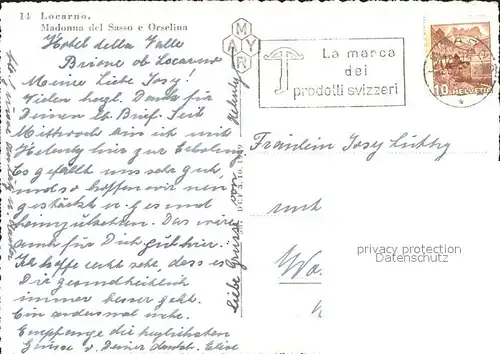 14 Locarno.
Madonna del Sasso e Orselina
Hotel della Valle
Brione ob Locarno
Meine Liebe Josy!
Vielen herzl. Dank für
Deinen lb. Brief. Seit
Mittwoch bin ich mit
Helenty hier zur Erholung
Es gefällt uns sehr gut,
und so hoffen wir neu
gestärkt u. gesund
heimzukehren. Das wäre
auch für Dich gut hier.
Ich hoffe recht sehr, dass es
Dir gesundheitlich
immer besser geht.
Ein andermal mehr.
Empfange die herzlichsten
Grüsse v. Deiner dankb. Elise
liebe Grüsse von Helenty
MAYR
DCF 3.10.
La marca
dei
prodotti svizzeri
10 HELVETIA
Fräulein Josy Lüthy
privacy protection
Datenschutz
Wa